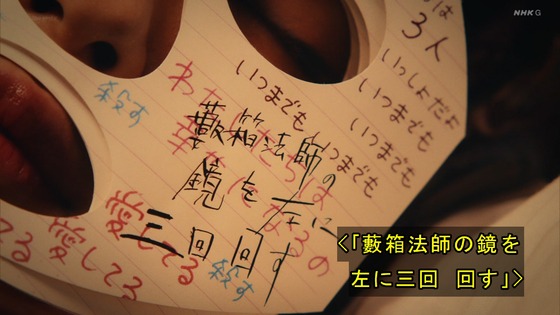 NHK G
は
3人
いっしょだよ
いつまでも
いつまでも
いつまでも
いつまでも
殺す
藪箱法師の
鏡を左に
三回回す
愛してる
愛してる
殺す
<「藪箱法師の鏡を
左に三回 回す」>